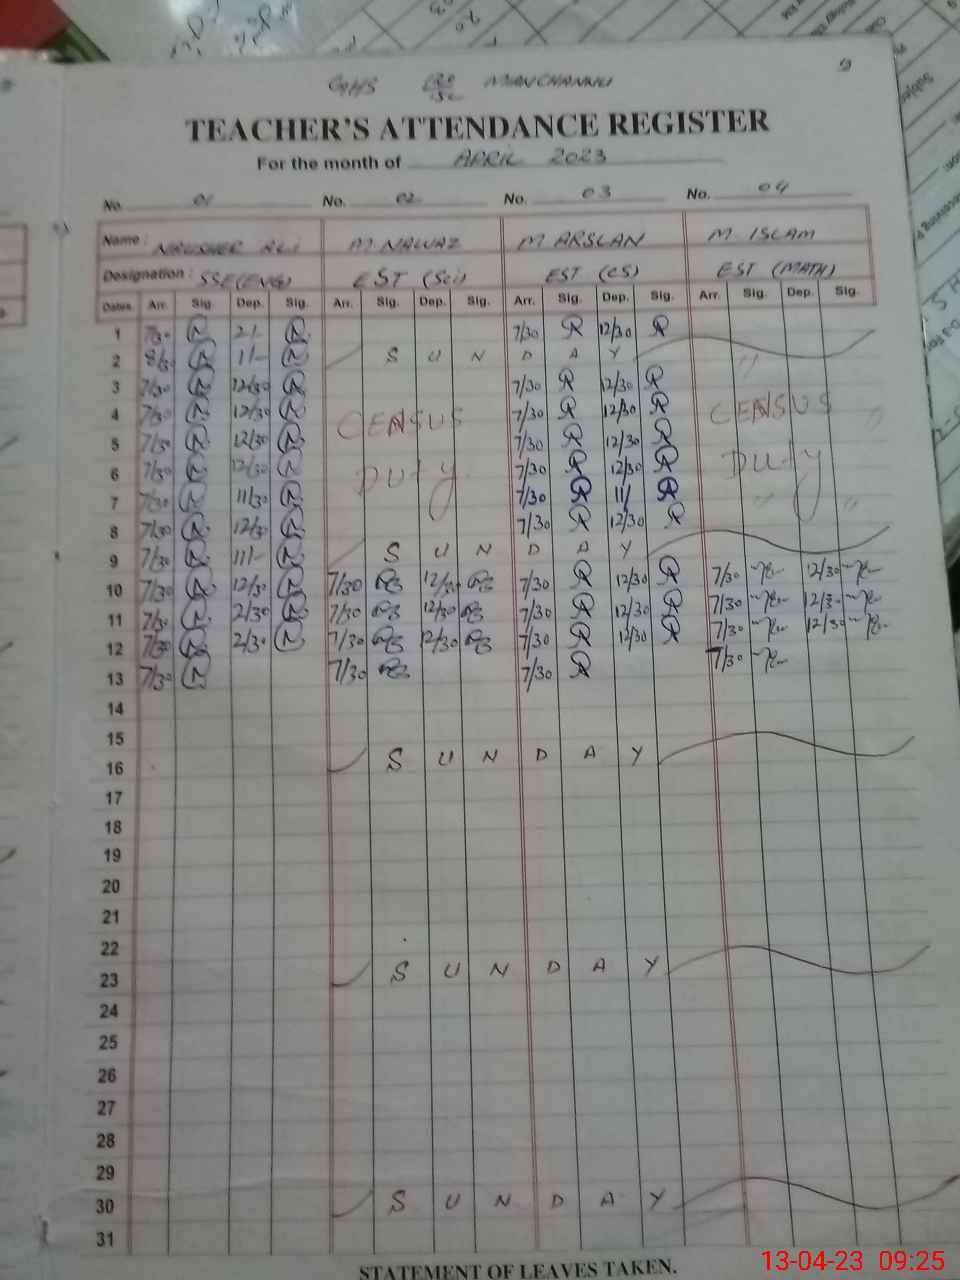 9
GHS MANCHANNU
TEACHER'S ATTENDANCE REGISTER
For the month of APRIL 2023
No. 01 No. 02 No. 03 No. 04
Name: ALI M NAWAZ M ARSLAN M. ISLAM
Designation: SSE(ENG) EST (Sci) EST (CS) EST (MATH)
Dates Arr. Sig. Dep. Sig. Arr. Sig. Dep. Sig. Arr. Sig. Dep. Sig. Arr. Sig. Dep. Sig.
1 7/30 2/- 7/30 12/30
2 8/30 11/- S U N D A Y
3 7/30 12/30 7/30 12/30
4 7/30 12/30 CENSUS 7/30 12/30 CENSUS
5 7/30 12/30 7/30 12/30
6 7/30 12/30 Duty 7/30 12/30 Duty
7 7/30 11/30 7/30 11/
8 7/30 12/30 7/30 12/30
9 7/30 11/- S U N D A Y
10 7/30 12/30 7/30 12/30 7/30 12/30 7/30 12/30
11 7/30 2/30 7/30 12/30 7/30 12/30 7/30 12/30
12 7/30 2/30 7/30 12/30 7/30 12/30 7/30 12/30
13 7/30 7/30 7/30 7/30
14
15
16 S U N D A Y
17
18
19
20
21
22
23 S U N D A Y
24
25
26
27
28
29
30 S U N D A Y
31
STATEMENT OF LEAVES TAKEN.
13-04-23 09:25